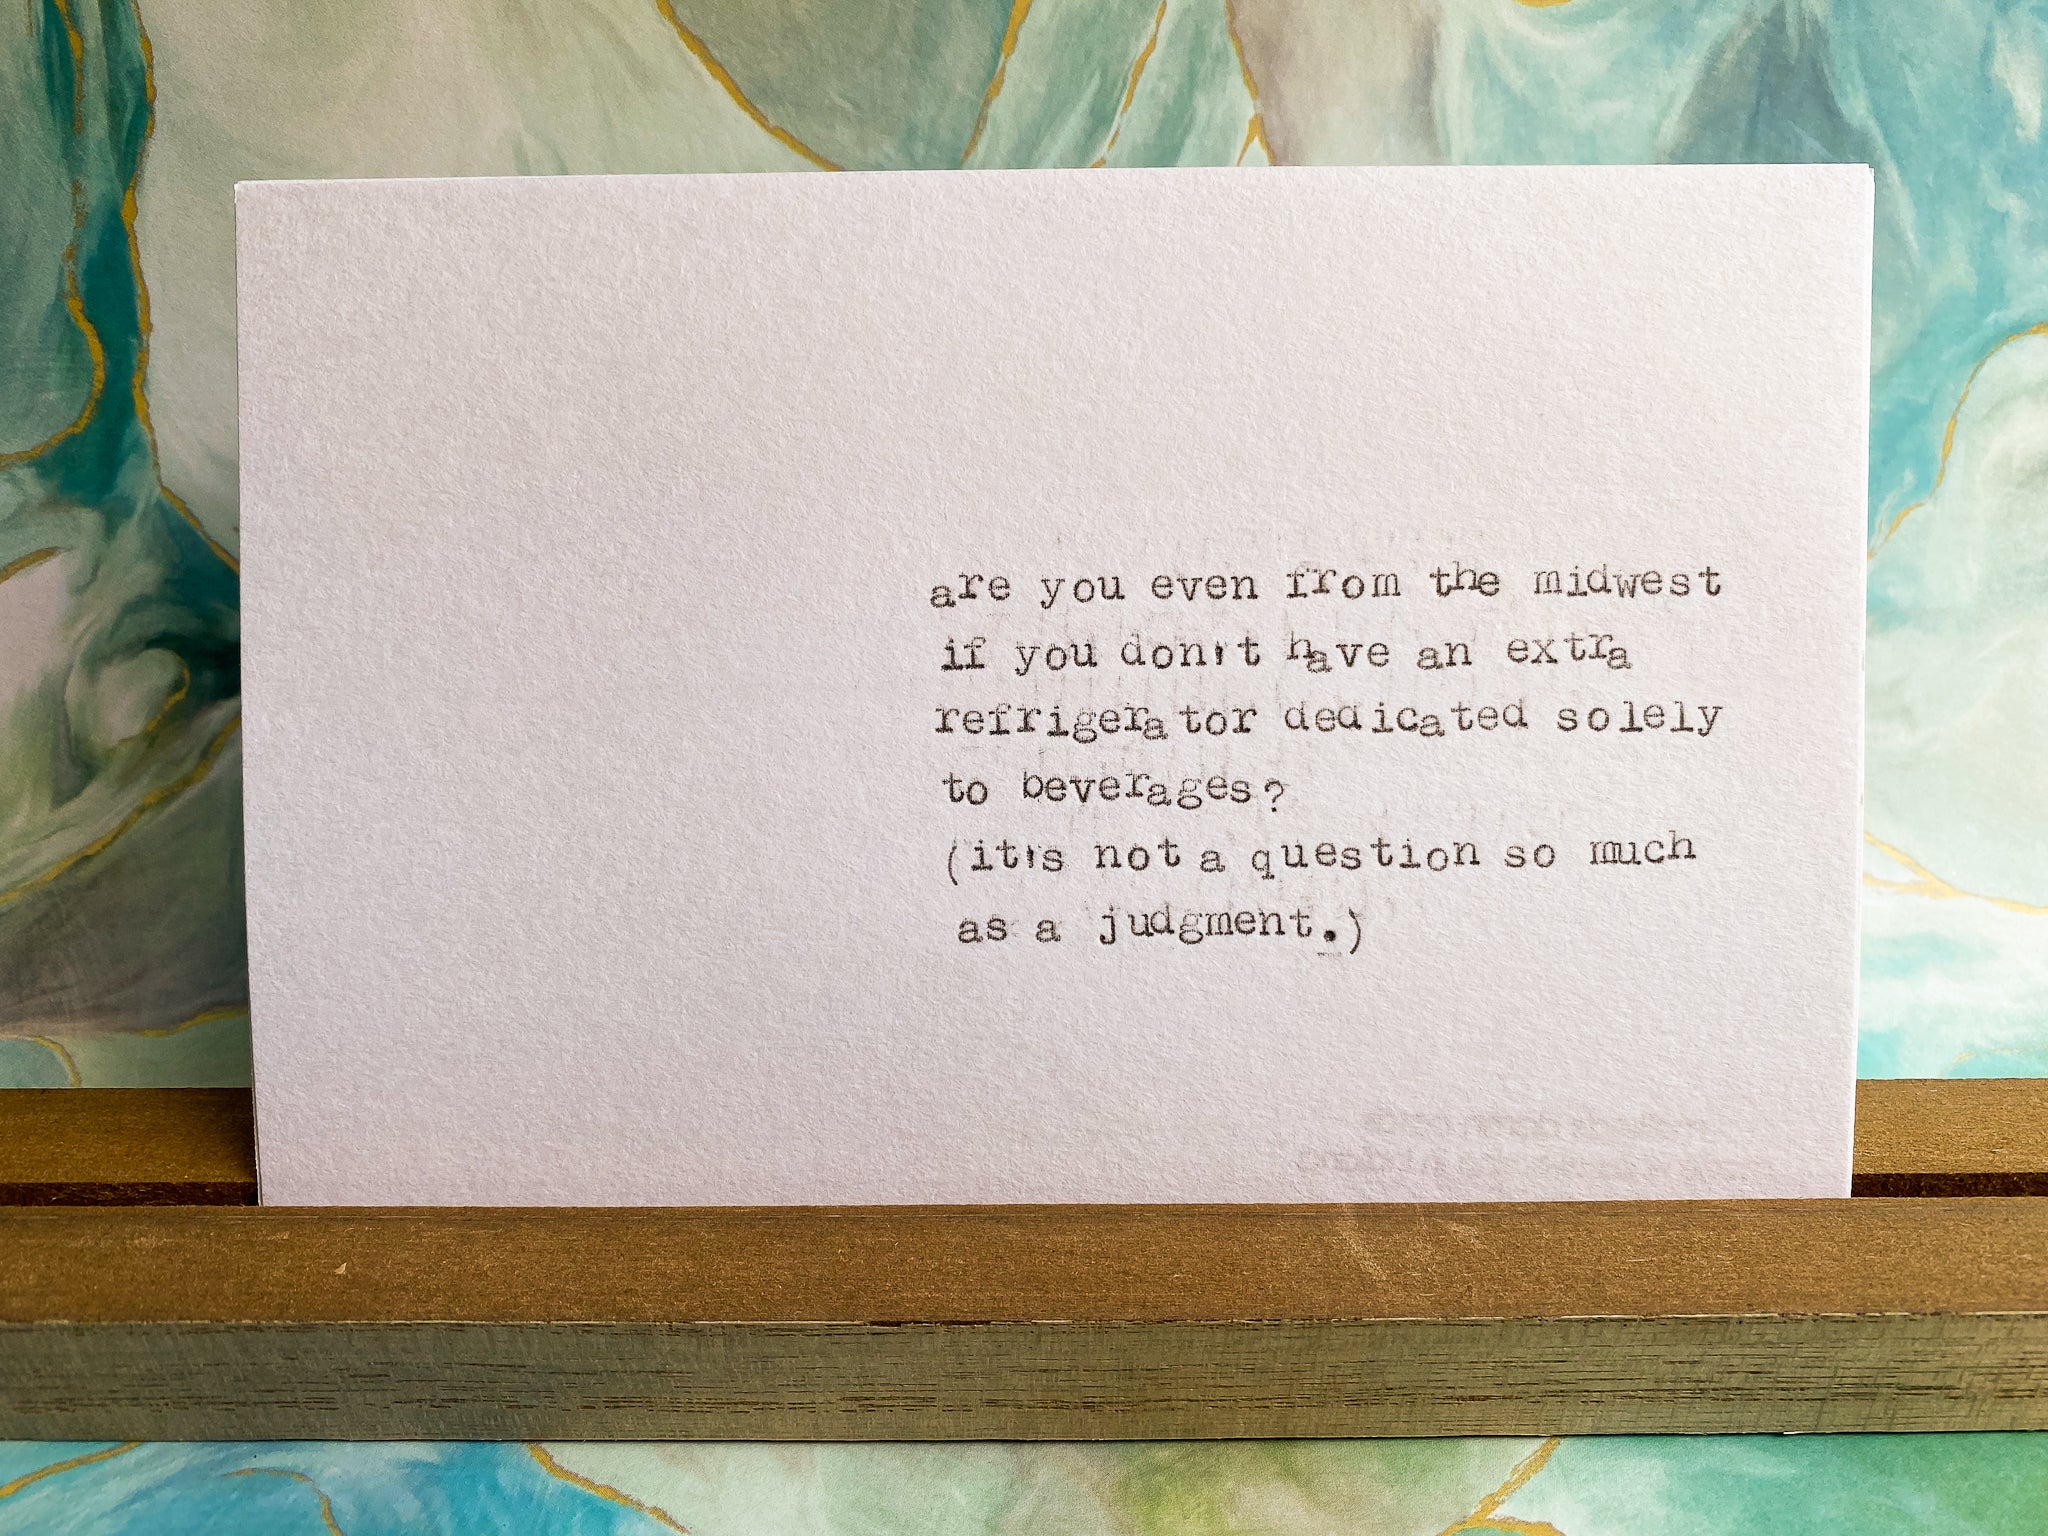 are you even from the midwest
if you don't have an extra
refrigerator dedicated solely
to beverages?
(it's not a question so much
as a judgment.)